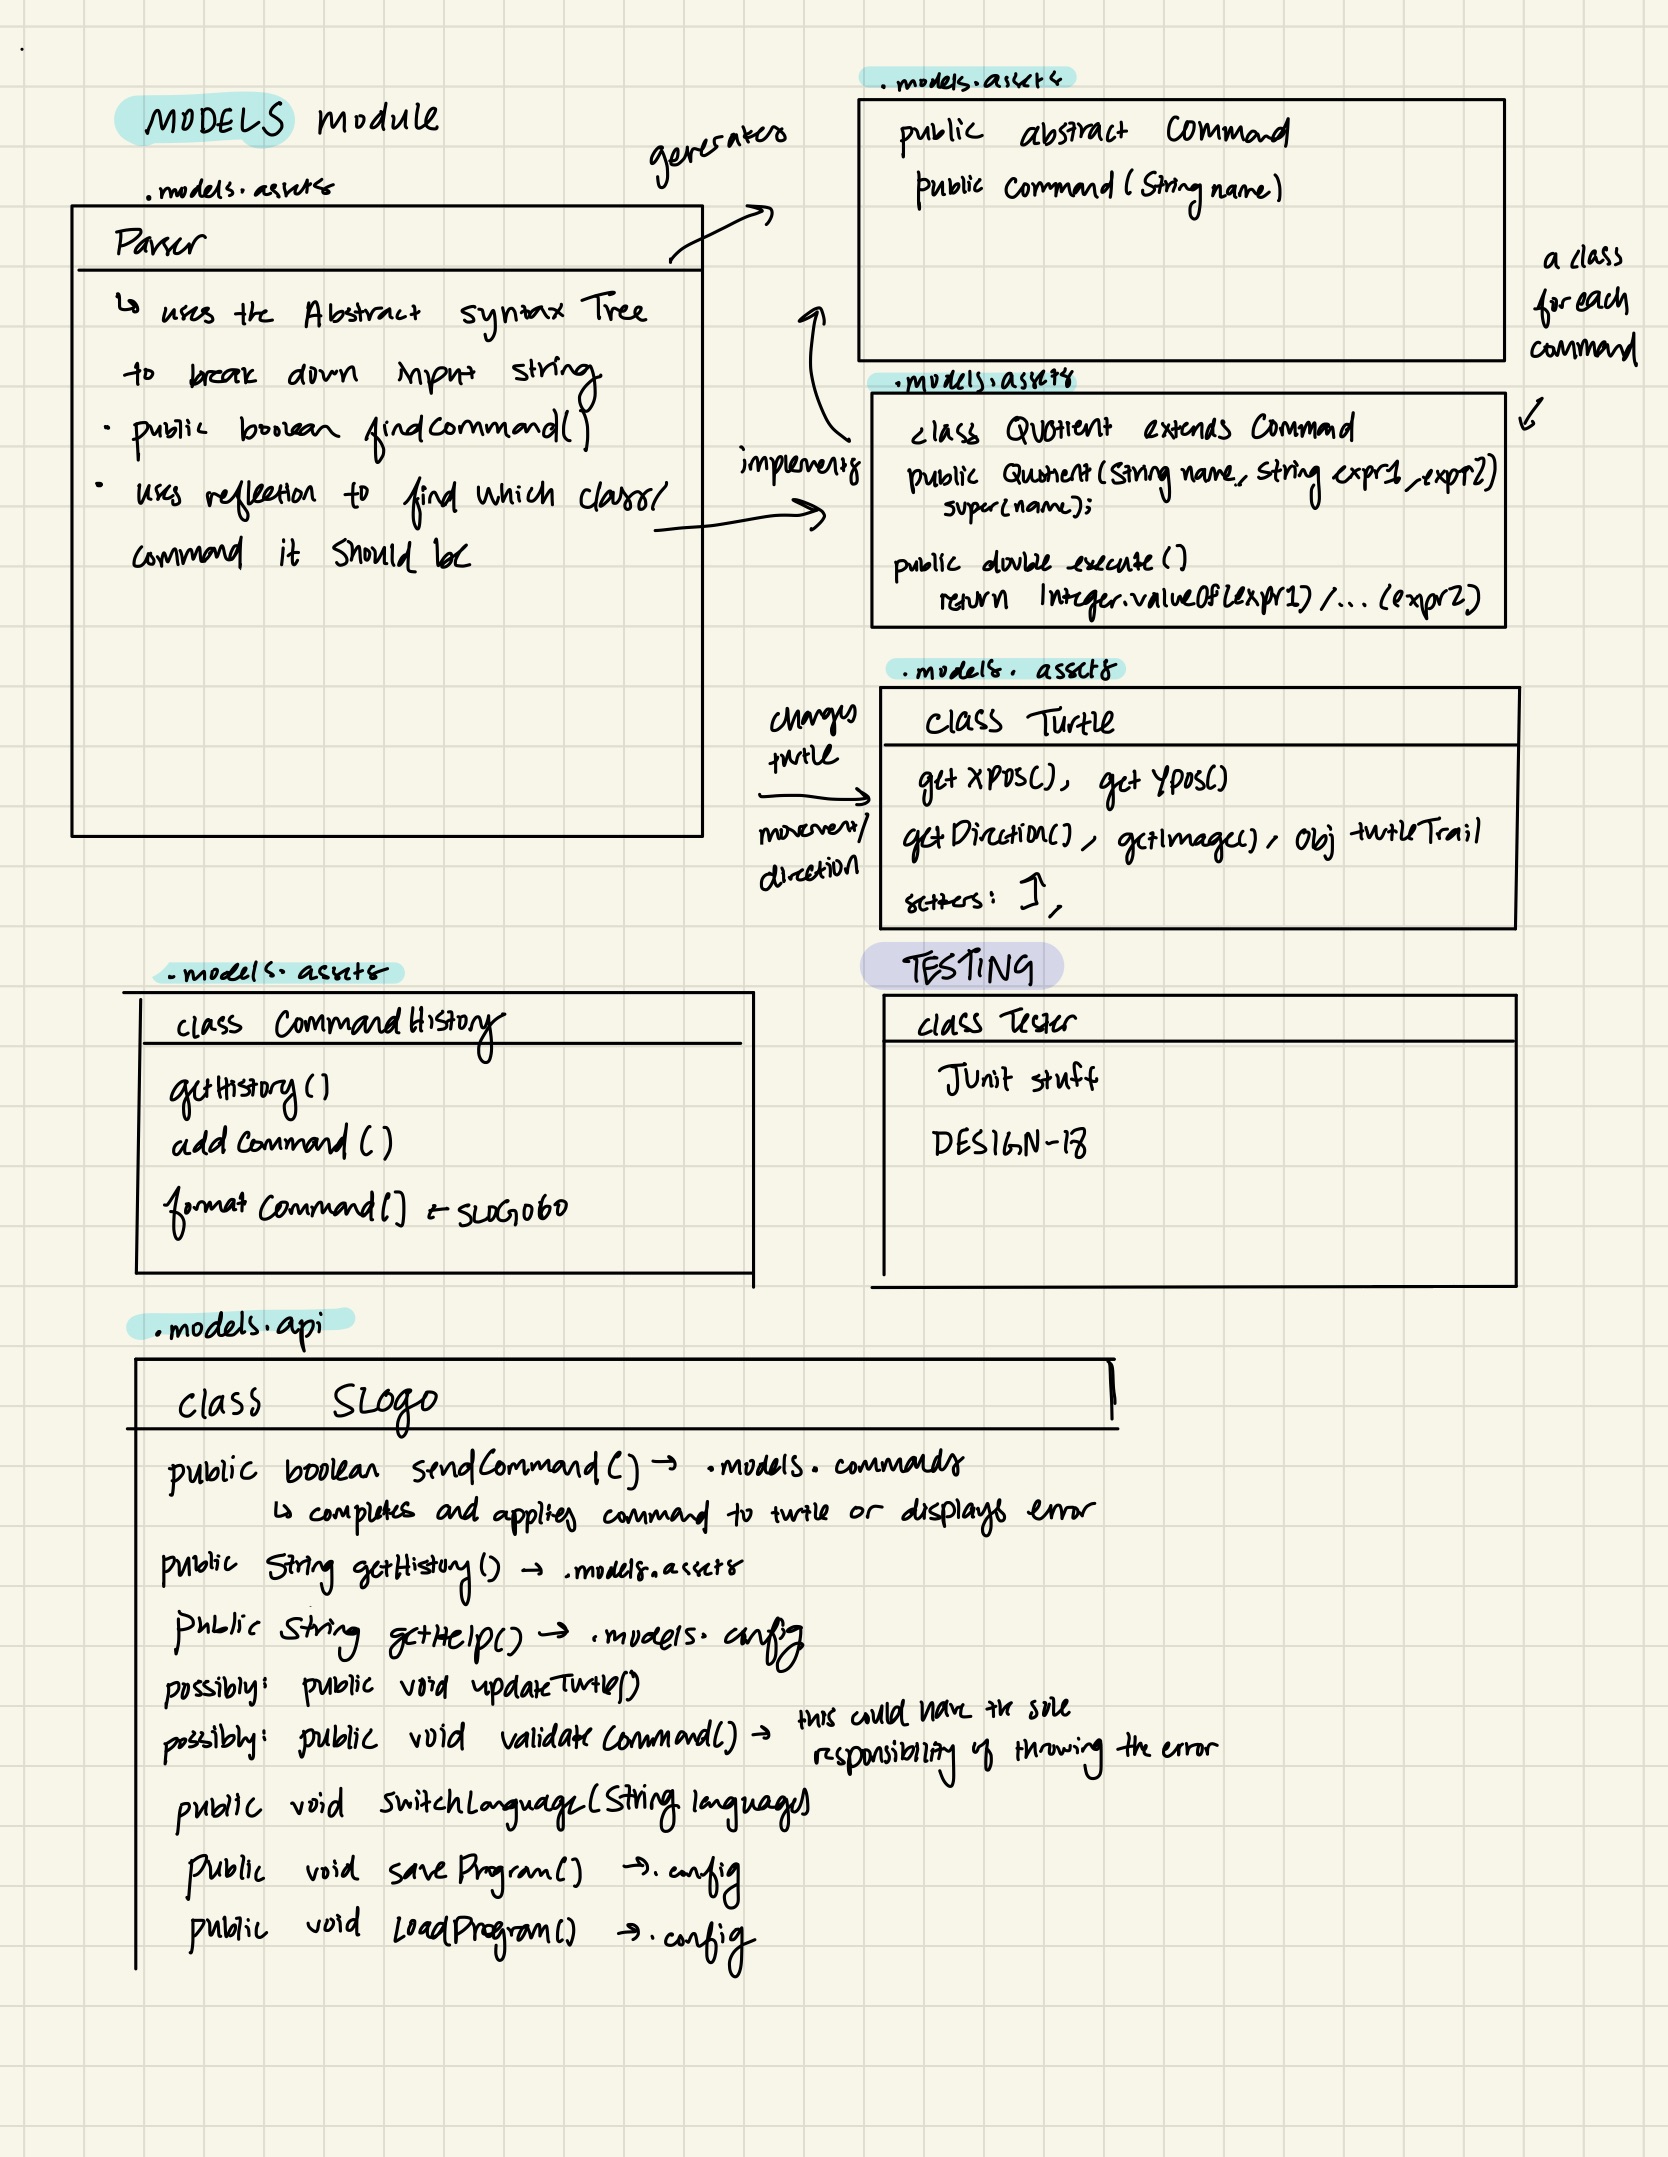 MODELS module
.models.assets
Parser
↳ uses the Abstract syntax Tree
to break down input string
· public boolean findCommand()
· uses reflection to find which class/
command it should be
generates
.models.assets
public abstract Command
public Command(String name)
a class
for each
command
implements
.models.assets
class Quotient extends Command
public Quotient(String name, String expr1, expr2)
super(name);
public double execute()
return Integer.valueOf(expr1) /... (expr2)
changes
turtle
movement/
direction
.models. assets
class Turtle
getXPos(), getYPos()
getDirection(), getImage(), Obj turtleTrail
setters: ↑,
.models. assets
class CommandHistory
getHistory()
addCommand()
formatCommand() ← SLOGO60
TESTING
class Tester
JUnit stuff
DESIGN-18
.models.api
class SLogo
public boolean sendCommand() → .models.commands
↳ completes and applies command to turtle or displays error
public String getHistory() → .models.assets
public String getHelp() → .models.config
possibly: public void updateTurtle()
possibly: public void validateCommand() → this could have the sole
responsibility of throwing the error
public void switchLanguage(String language)
public void saveProgram() → .config
public void LoadProgram() → .config